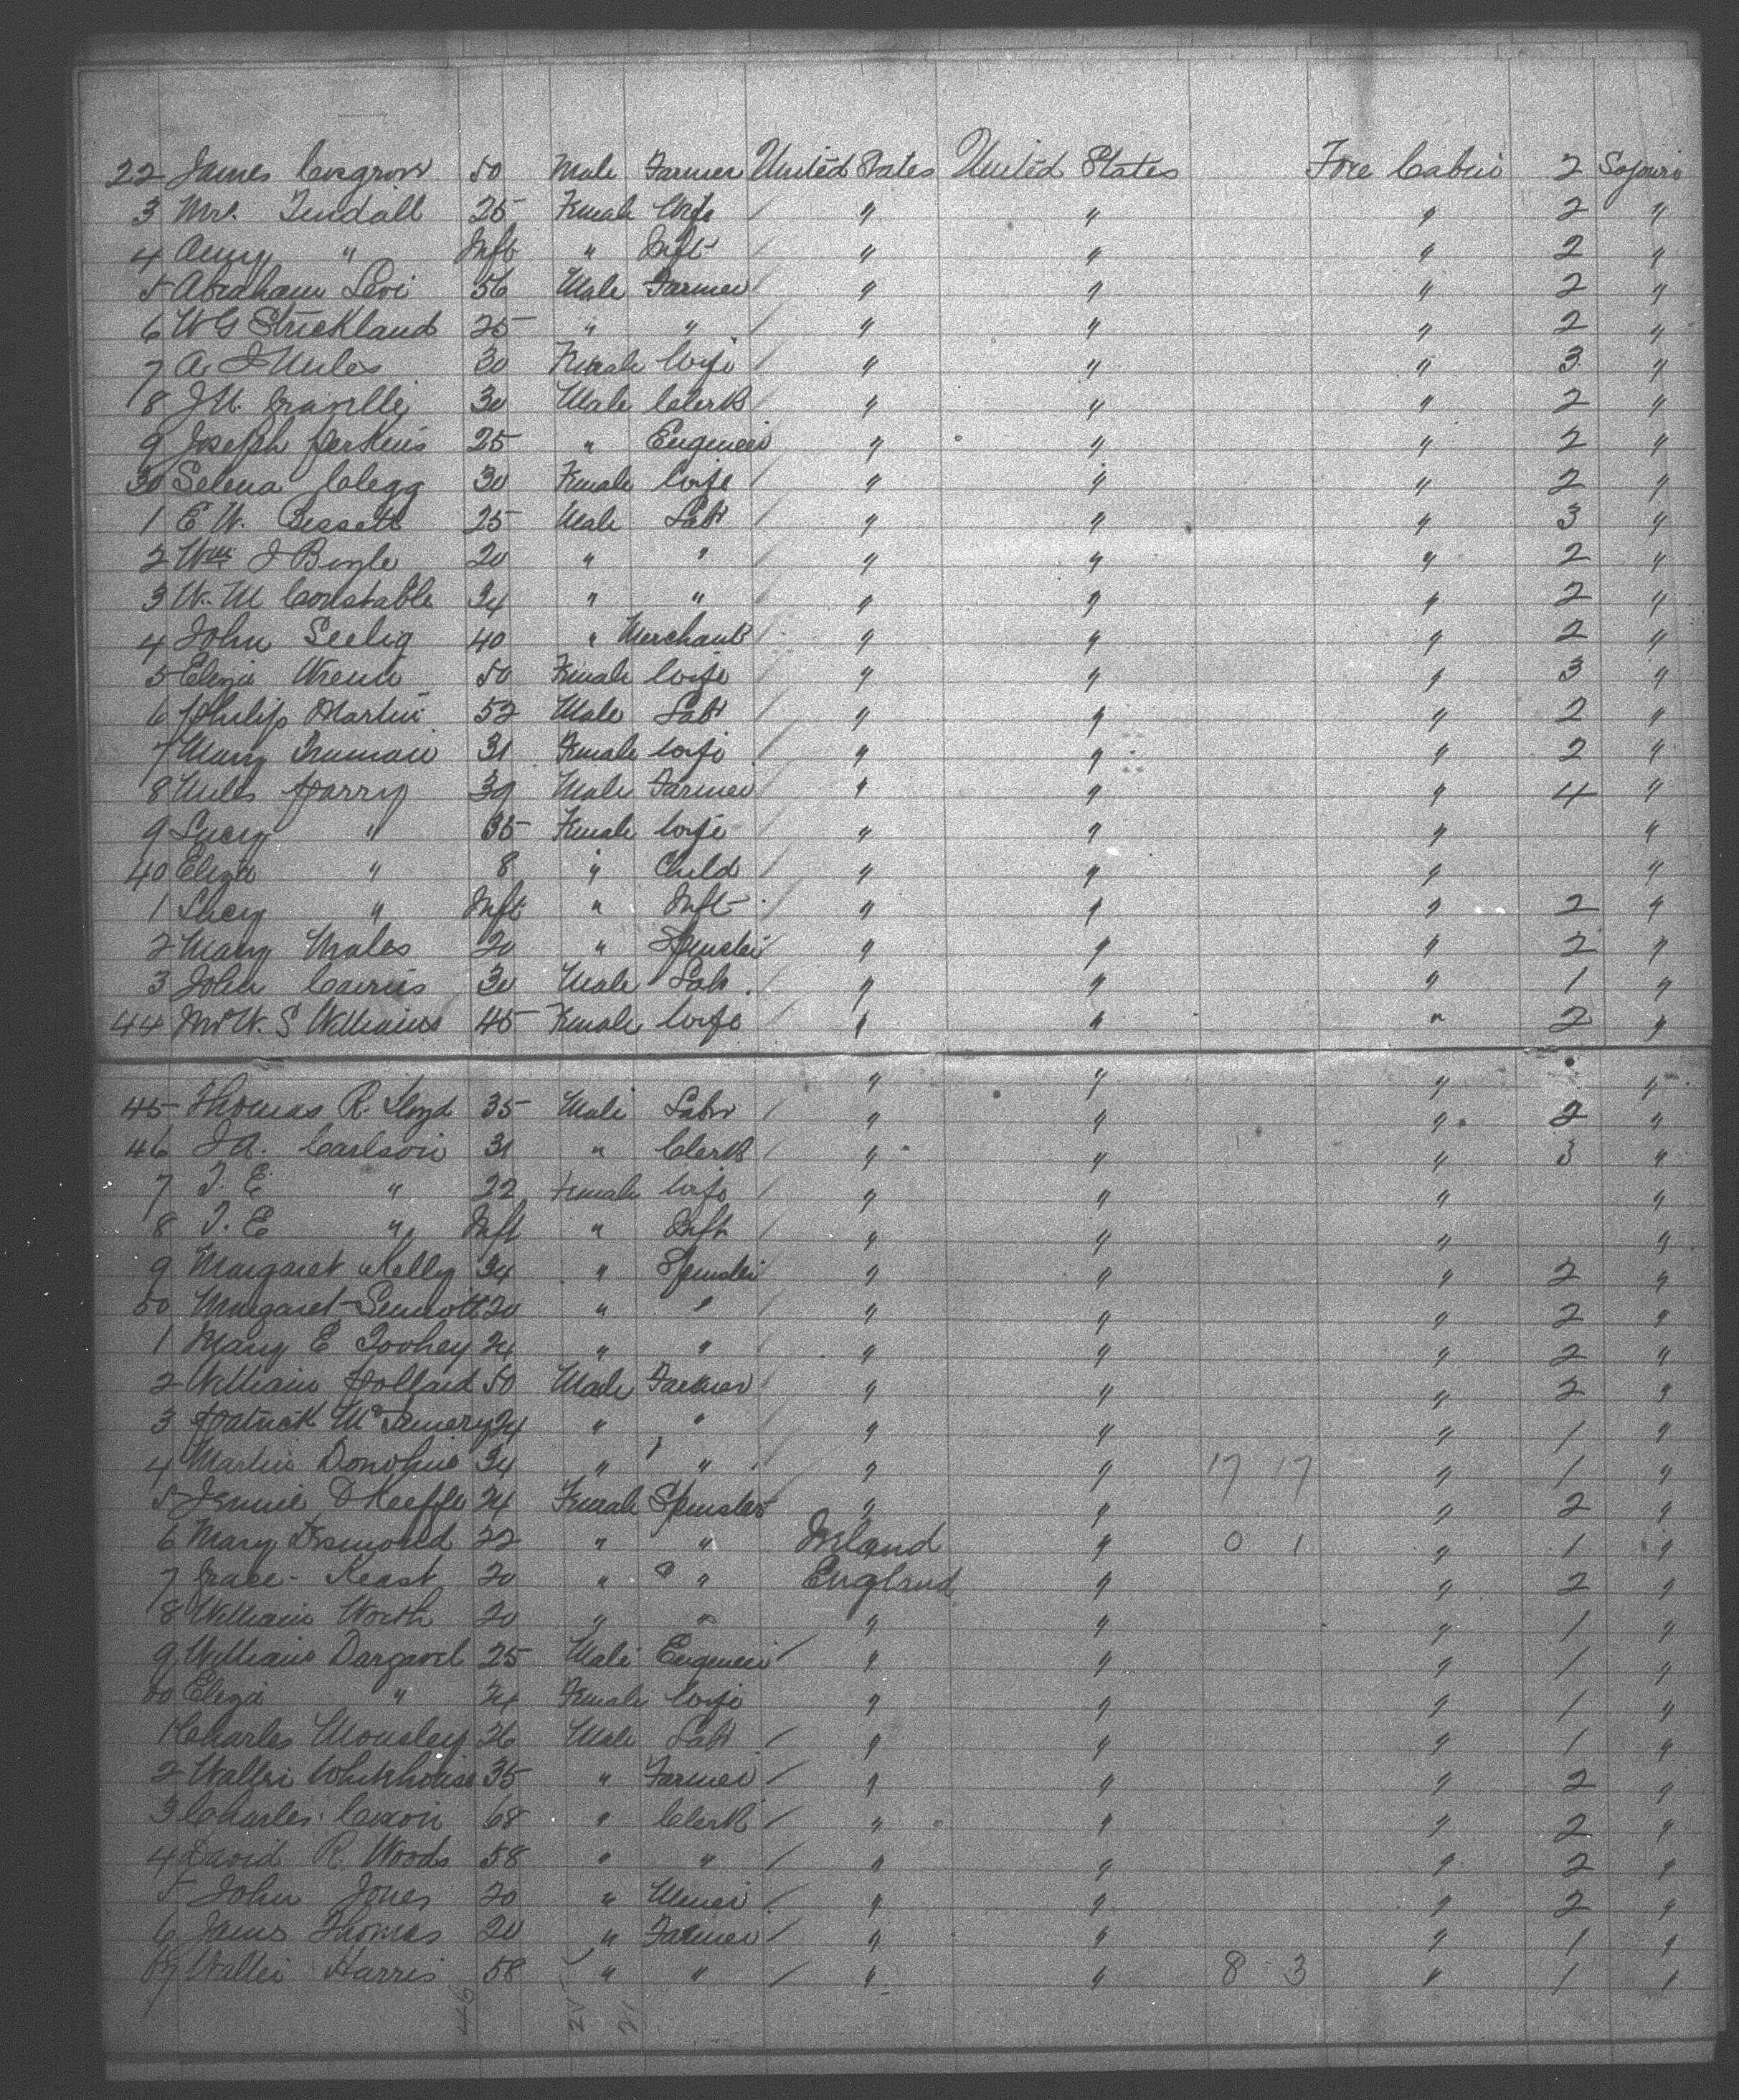 22 James Cosgrove 50 Male Farmer United States United States Fore Cabin 2 Sojourn
3 Mrs. Tindall 25 Female Wife / " " " 2 "
4 Amy " Inft " Inft " " " 2 "
5 Abraham Levi 56 Male Farmer / " " " 2 "
6 W G Strickland 25 " " / " " " 2 "
7 A. J Miles 30 Female Wife " " " 3 "
8 J. 30 Male Clerk / " " " 2 "
9 Joseph Perkins 25 " Engineer " " " 2 "
30 Selena Clegg 30 Female Wife / " " " 2 "
1 E W. Bessett 25 Male Labr / " " " 3 "
2 Wm J Boyle 20 " " / " " " 2 "
3 W. M Constable 34 " " / " " " 2 "
4 John Seelig 40 " Merchant / " " " 2 "
5 Eliza Wrenn 50 Female Wife / " " " 3 "
6 Philip Martin 52 Male Labr / " " " 2 "
7 Mary Truman 31 Female Wife / " " " 2 "
8 Miles Parry 39 Male Farmer / " " " 4 "
9 Lucy " 35 Female Wife / " " " "
40 Eliza " 8 " Child / " " " "
1 Lucy " Inft " Inft " " " 2 "
2 Mary Males 20 " Spinster " " " 2 "
3 John Cairns 30 Male Labr " " " 1 "
44 Mrs W. S Williams 45 Female Wife / " " " 2 "
" " " "
45 Thomas R. Lloyd 35 Male Labr / " " " 2 "
46 J A. Carlson 31 " Clerk / " " " 3 "
7 T. E. " 22 Female Wife / " " " "
8 T. E " Inft " Inft / " " " "
9 Margaret Kelly 34 " Spinster " " " 2 "
50 Margaret Sennott 20 " " / " " " 2 "
1 Mary E Toohey 24 " " / " " " 2 "
2 William Pollard 50 Male Farmer / " " " 2 "
3 Patrick McInnery 24 " " / " " " 1 "
4 Martin Donohue 34 " " " " 17 17 " 1 "
5 Jennie O Keeffe 24 Female Spinster " " " 2 "
6 Mary Desmond 22 " " Ireland " 0 1 " 1 "
7 Grace Keast 20 " " England " " 2 "
8 William Worth 20 " " " " " 1 "
9 William Dargavel 25 Male Engineer / " " " 1 "
60 Eliza " 24 Female Wife " " " 1 "
1 Charles Mousley 26 Male Labr / " " " 1 "
2 Walter Whitehouse 35 " Farmer / " " " 2 "
3 Charles Coxon 68 " Clerk / " " " 2 "
4 David R. Woods 58 " " / " " " 2 "
5 John Jones 20 " Miner / " " " 2 "
6 James Thomas 20 " Farmer / " " " 1 "
67 Walter Harris 58 " " / " " 8 3 " 1 "
46 25 21